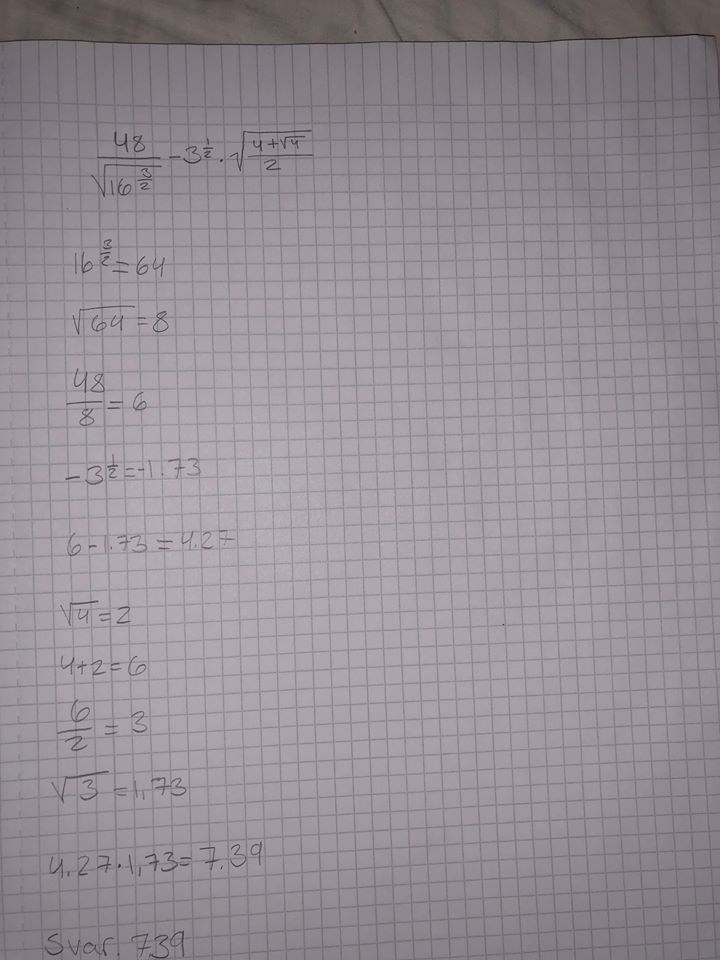 48/√(16^(3/2)) - 3^(1/2) · √((4+√4)/2)
16^(3/2) = 64
√64 = 8
48/8 = 6
-3^(1/2) = -1.73
6-1.73 = 4.27
√4 = 2
4+2 = 6
6/2 = 3
√3 = 1,73
4.27·1,73 = 7.39
Svar. 7.39